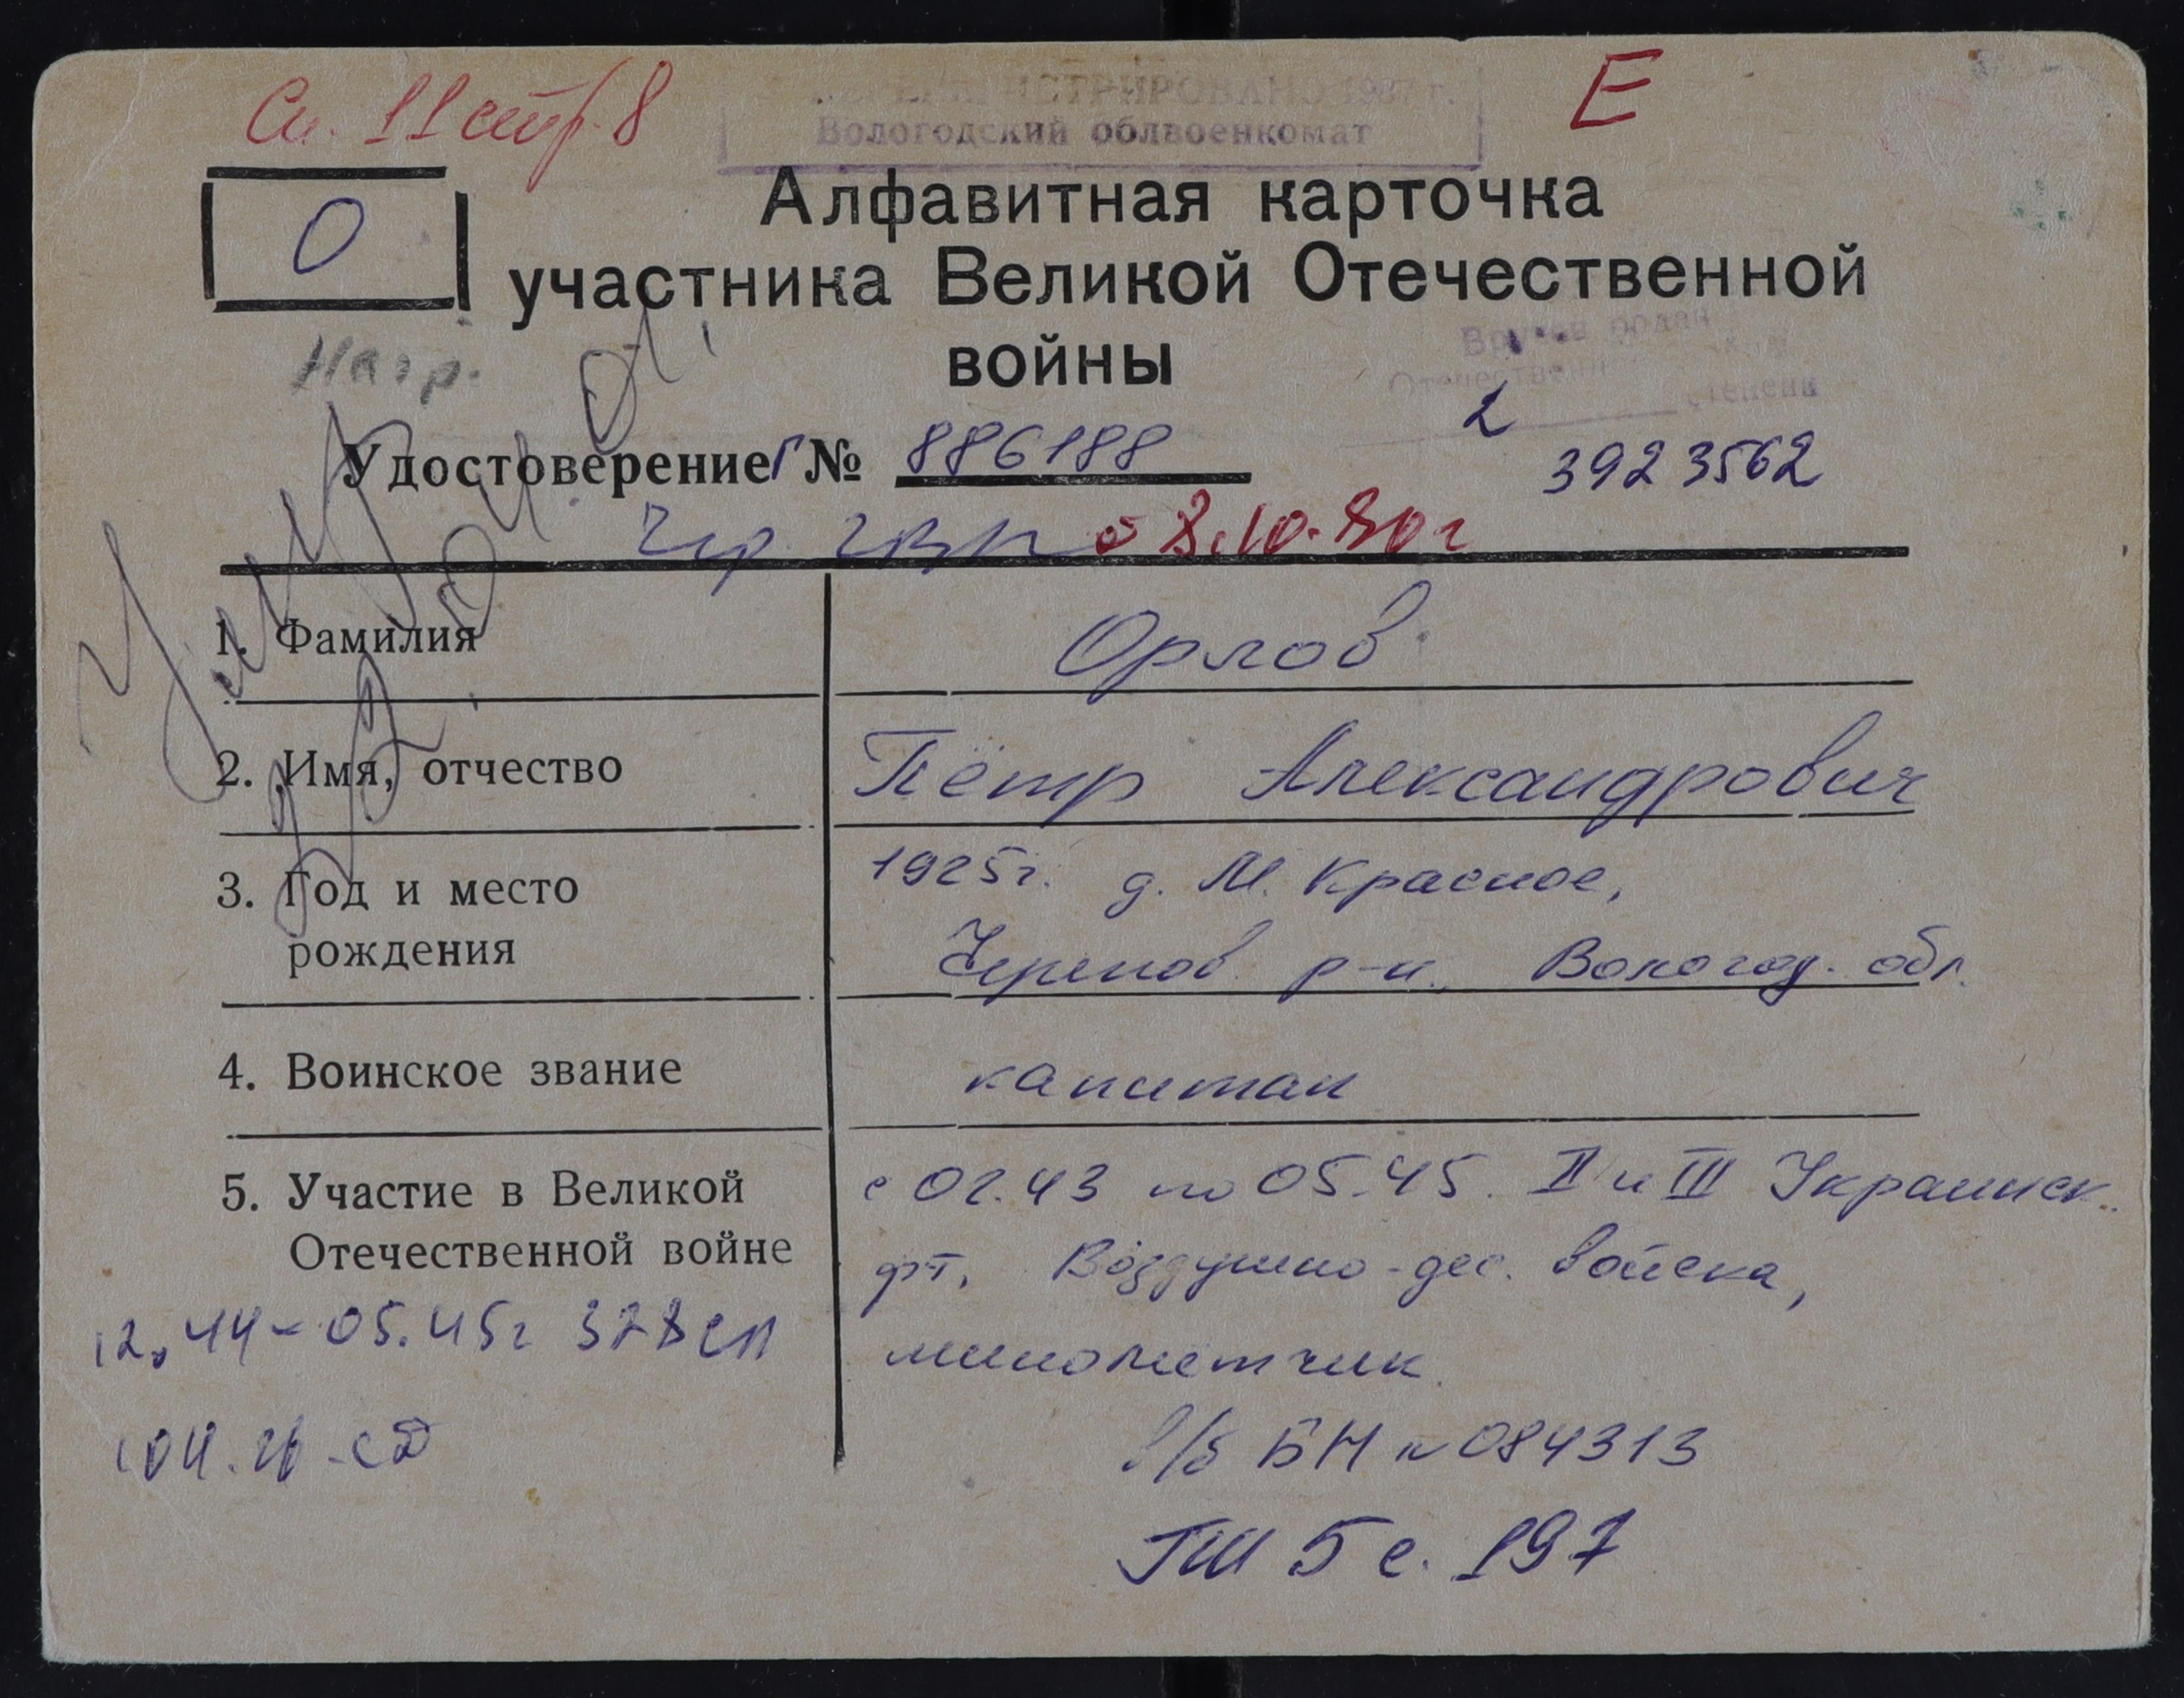 Сп. 11 стр. 8
Е
Вологодский облвоенкомат
О
Алфавитная карточка
участника Великой Отечественной
войны
Нагр.
степени
2
Удостоверение Г № 886188
3923562
8.10.80г
Умер
1. Фамилия Орлов
2. Имя, отчество Пётр Александрович
3. Год и место рождения 1925г. д. М. Красное,
Черепов. р-н., Вологод. обл.
4. Воинское звание капитан
5. Участие в Великой Отечественной войне с 02.43 по 05.45. II и III Украинск.
фт. Воздушно-дес. войска,
минометчик.
12.44-05.45г 378 сп
104 гв. сд
в/б БН № 084313
ГШ 5 с. 197